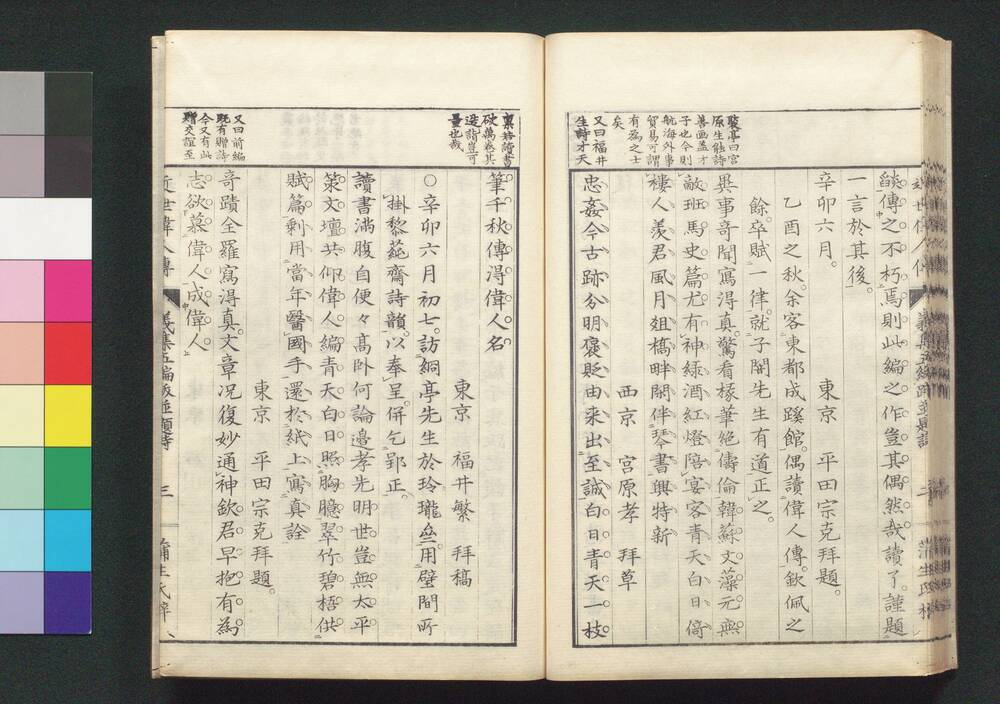 聚亭曰宮
原生能詩
善画蓋才
子也今則
航海外事
貿易可謂
有爲之士
矣
又曰福井
生詩才天
燄傳之不朽焉則此編之作豈其偶然哉讀了謹題
一言於其後
辛卯六月 東京 平田宗克拜題
乙酉之秋余客東都成蹊館偶讀偉人傳欽佩之
餘卒賦一律就子闇先生有道正之
異事奇聞寫得真驚看椽筆絕儔倫韓蘇文藻元無
敵班馬史篇尤有神綠酒紅燈陪宴客青天白日倚
樓人羨君風月爼橋畔閑伴琴書興特新
西京 宮原孝 拜草
忠姦今古跡分明褒貶由来出至誠白日青天一枝
稟若讀書
破萬卷其
造詣豈可
量也哉
又曰前編
既有贈詩
今又有此
贈交誼至
筆千秋傳得偉人名
東京 福井繁 拜稿
○辛卯六月初七訪絅亭先生於玲瓏㕑用壁間所
掛黎蒓齋詩韻以奉呈併乞郢正
讀書滿腹自便々高卧何論邊孝先明世豈無太平
策文壇共仰偉人編青天白日照胸臆翠竹碧梧供
賦篇剩用當年醫國手還於紙上寫真詮
東京 平田宗克拜題
奇蹟全羅寫得真文章况復妙通神欽君早抱有為
志欲慕偉人成偉人
近世偉人傳
義集五編跋並題詩
三
蒲生氏梓